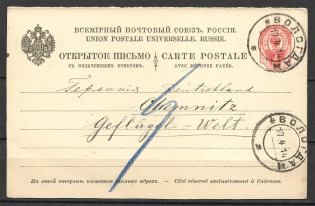 ВСЕМІРНЫЙ ПОЧТОВЫЙ СОЮЗЪ. РОССІЯ.
UNION POSTALE UNIVERSELLE. RUSSIE.
ОТКРЫТОЕ ПИСЬМО CARTE POSTALE
СЪ ОПЛАЧЕННЫМЪ ОТВѢТОМЪ. AVEC RÉPONSE PAYÉE.
ВОЛОГДА
Германія Deutschland
Chemnitz
Geflügel-Welt.
ВОЛОГДА
11 4 14
На этой сторонѣ пишется только адресъ. — Côté réservé exclusivement à l'adresse.